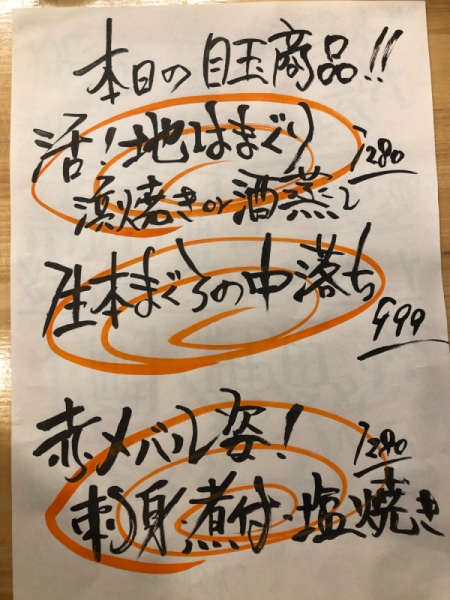 本日の目玉商品!!
活!地はまぐり 1280
浜焼きor酒蒸し
生本まぐろの中落ち 999
赤メバル姿! 1280
刺身・煮付・塩焼き